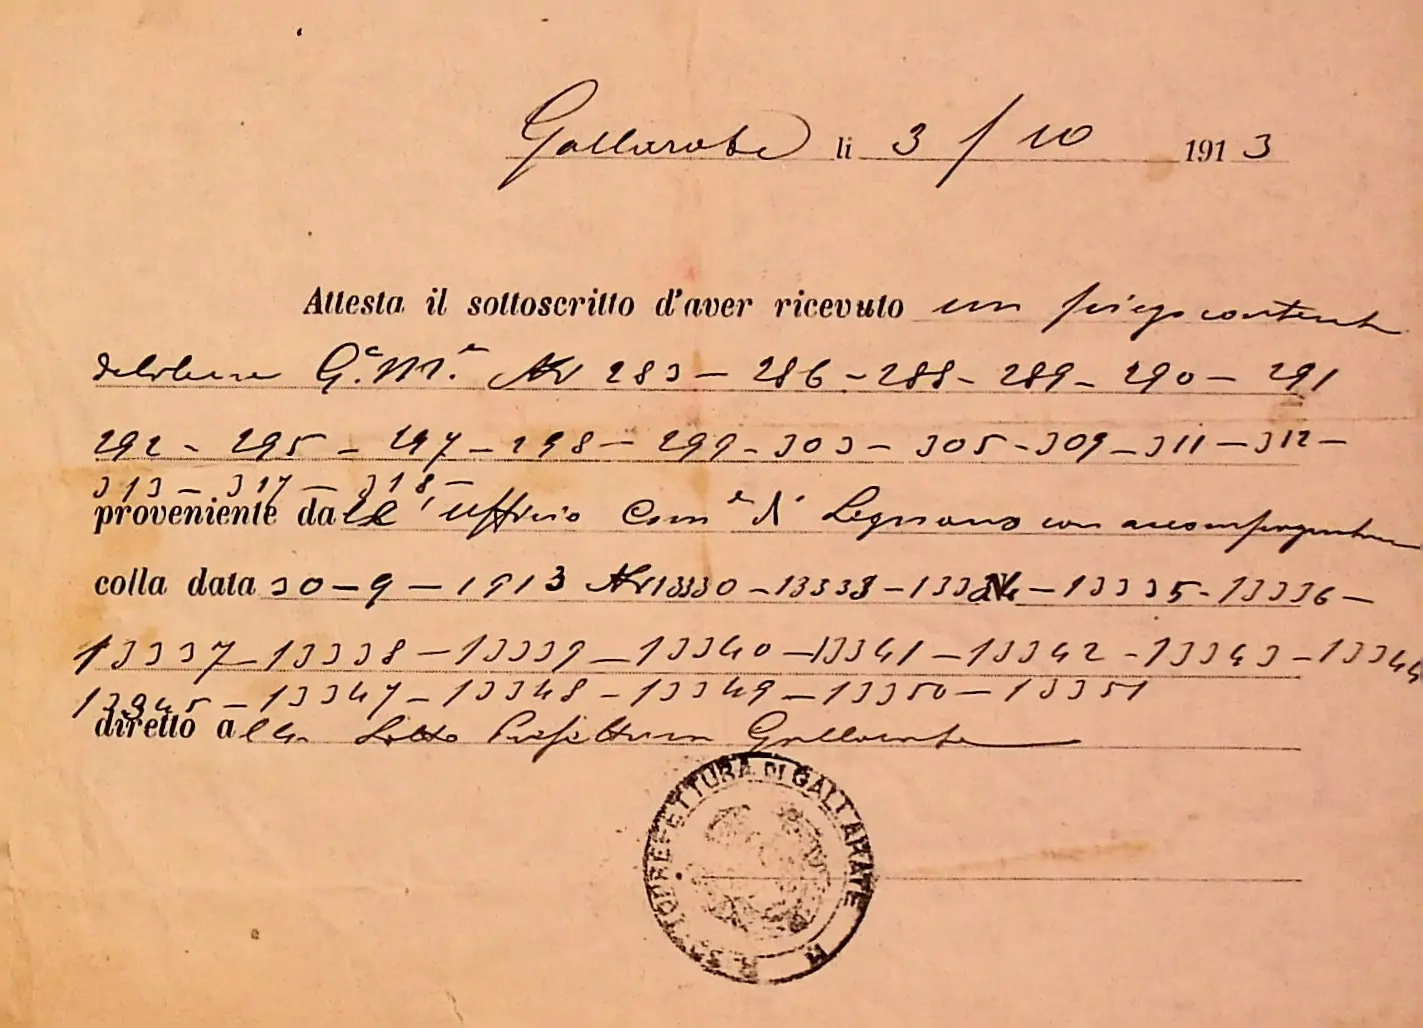 Gallarate li 3 / 10 1913
Attesta il sottoscritto d'aver ricevuto un piego contenente
delibere G.ᵃ M.ᵉ Nr 283 - 286 - 288 - 289 - 290 - 291
292 - 295 - 297 - 298 - 299 - 303 - 305 - 309 - 311 - 312 -
313 - 317 - 318 -
proveniente dall'Ufficio Com.ᵉ di Legnano con accompagnatorie
colla data 30 - 9 - 1913 Nr 13330 - 13333 - 13334 - 13335 - 13336 -
13337 - 13338 - 13339 - 13340 - 13341 - 13342 - 13343 - 13344
13345 - 13347 - 13348 - 13349 - 13350 - 13351
diretto alla Sotto Prefettura Gallarate
R. SOTTOPREFETTURA DI GALLARATE